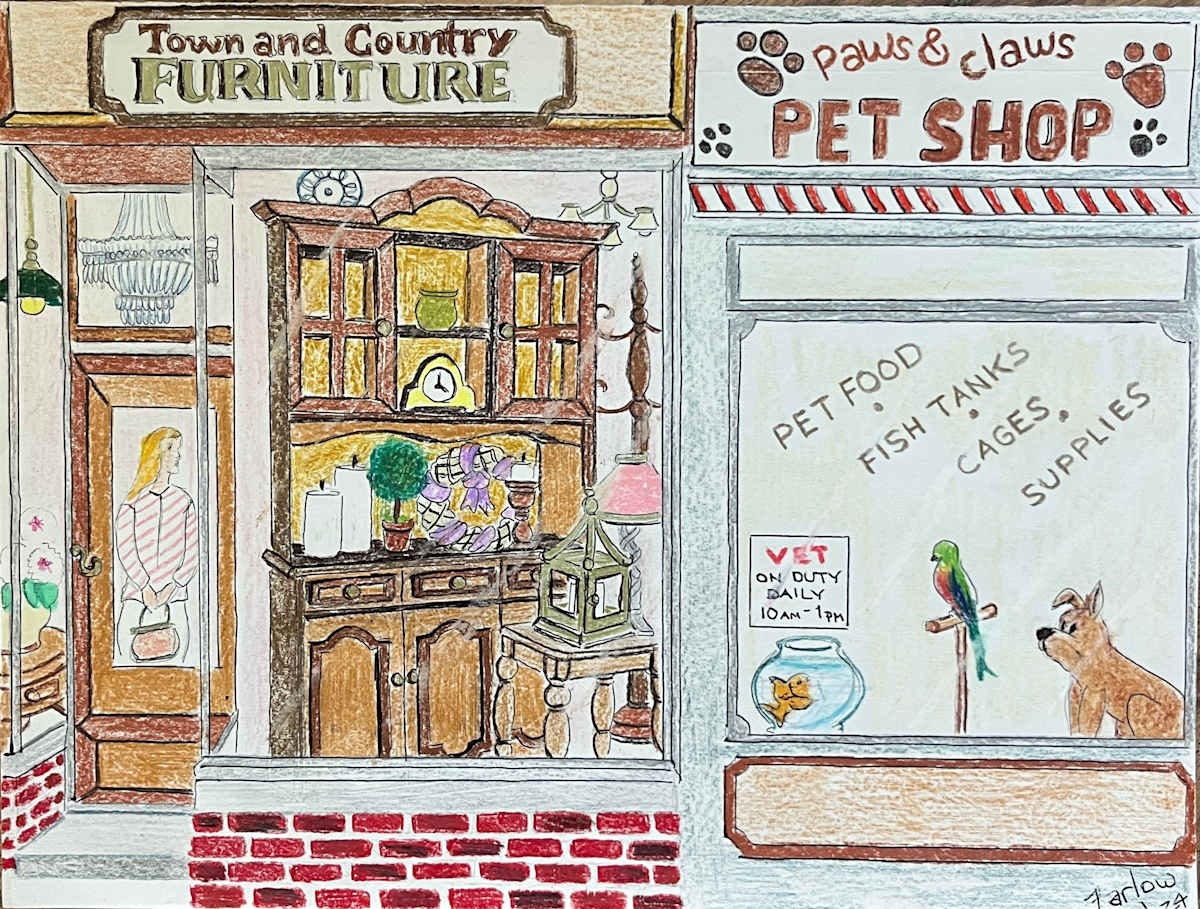 Town and Country
FURNITURE
paws & claws
PET SHOP
PET FOOD
• FISH TANKS
• CAGES •
SUPPLIES
VET
ON DUTY
DAILY
10AM-1PM
Farlow